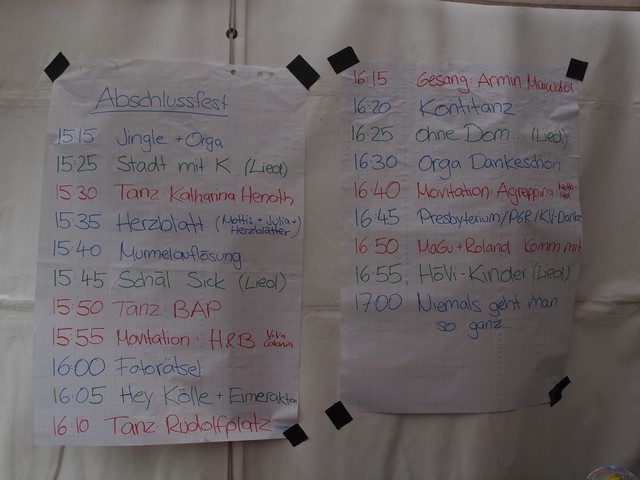 Abschlussfest
15:15 Jingle + Orga
15:25 Stadt mit K (Lied)
15:30 Tanz Katharina Henoth
15:35 Herzblatt (Mottis + Julia + Herzblätter)
15:40 Murmelauflösung
15:45 Schäl Sick (Lied)
15:50 Tanz BAP
15:55 Movitation: H&B Viva Colonia
16:00 Fotorätsel
16:05 Hey Kölle + Eimeraktion
16:10 Tanz Rudolfplatz
16:15 Gesang: Armin
16:20 Kontitanz
16:25 Ohne Dom... (Lied)
16:30 Orga Dankeschön
16:40 Movitation: Agrippina
16:45 Presbyterium/PGR/KV-Danke
16:50 MaGu + Roland Komm mit
16:55 HöVi-Kinder (Lied)
17:00 Niemals geht man
so ganz...